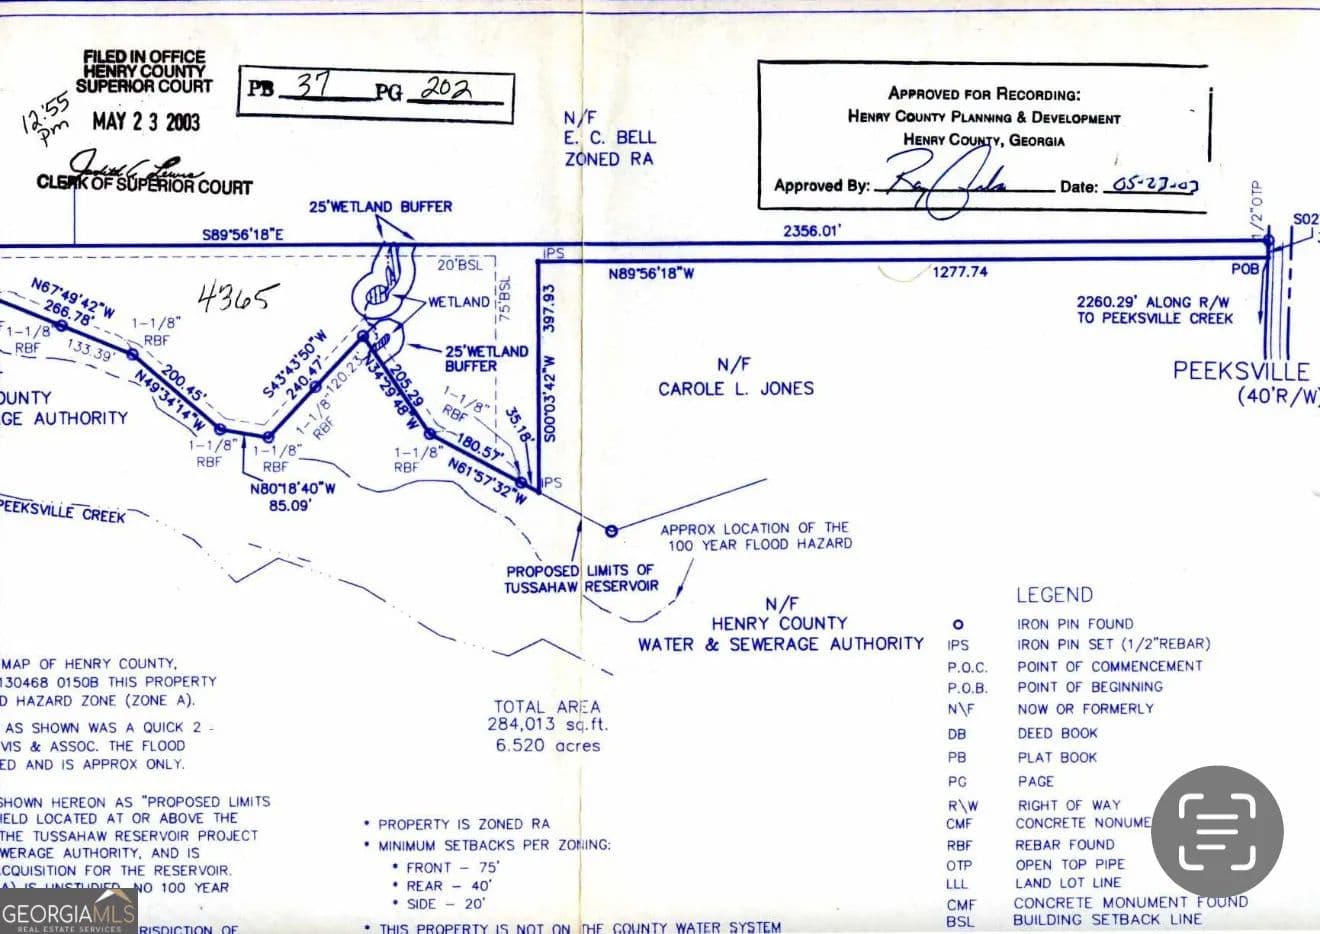 FILED IN OFFICE
HENRY COUNTY
SUPERIOR COURT
12:55 pm
MAY 23 2003
CLERK OF SUPERIOR COURT
PB 37 PG 202
N/F
E. C. BELL
ZONED RA
APPROVED FOR RECORDING:
HENRY COUNTY PLANNING & DEVELOPMENT
HENRY COUNTY, GEORGIA
Approved By: Date: 05-23-03
1/2"OTP
S02
25'WETLAND BUFFER
S89°56'18"E
2356.01'
IPS
20'BSL
75'BSL
N89°56'18"W
1277.74
POB
2260.29' ALONG R/W
TO PEEKSVILLE CREEK
PEEKSVILLE
(40'R/W)
4365
WETLAND
25'WETLAND
BUFFER
397.93
S00°03'42"W
N/F
CAROLE L. JONES
N67°49'42"W
266.78'
1-1/8"
RBF
133.39'
1-1/8"
RBF
200.45'
N49°34'14"W
S43°43'50"W
240.47'
120.23'
1-1/8"
RBF
205.29
N34°29'48"W
1-1/8"
RBF
35.18'
OUNTY
GE AUTHORITY
1-1/8"
RBF
1-1/8"
RBF
1-1/8"
RBF
180.57'
N61°57'32"W
IPS
N80°18'40"W
85.09'
PEEKSVILLE CREEK
APPROX LOCATION OF THE
100 YEAR FLOOD HAZARD
PROPOSED LIMITS OF
TUSSAHAW RESERVOIR
N/F
HENRY COUNTY
WATER & SEWERAGE AUTHORITY
MAP OF HENRY COUNTY,
130468 0150B THIS PROPERTY
D HAZARD ZONE (ZONE A).
AS SHOWN WAS A QUICK 2 -
VIS & ASSOC. THE FLOOD
ED AND IS APPROX ONLY.
SHOWN HEREON AS "PROPOSED LIMITS
IELD LOCATED AT OR ABOVE THE
THE TUSSAHAW RESERVOIR PROJECT
WERAGE AUTHORITY, AND IS
CQUISITION FOR THE RESERVOIR.
A) IS UNSTUDIED. NO 100 YEAR
RISDICTION OF
TOTAL AREA
284,013 sq.ft.
6.520 acres
* PROPERTY IS ZONED RA
* MINIMUM SETBACKS PER ZONING:
* FRONT - 75'
* REAR - 40'
* SIDE - 20'
* THIS PROPERTY IS NOT ON THE COUNTY WATER SYSTEM
LEGEND
O IRON PIN FOUND
IPS IRON PIN SET (1/2"REBAR)
P.O.C. POINT OF COMMENCEMENT
P.O.B. POINT OF BEGINNING
N\F NOW OR FORMERLY
DB DEED BOOK
PB PLAT BOOK
PG PAGE
R\W RIGHT OF WAY
CMF CONCRETE NONUME
RBF REBAR FOUND
OTP OPEN TOP PIPE
LLL LAND LOT LINE
CMF CONCRETE MONUMENT FOUND
BSL BUILDING SETBACK LINE
GEORGIAMLS
REAL ESTATE SERVICES